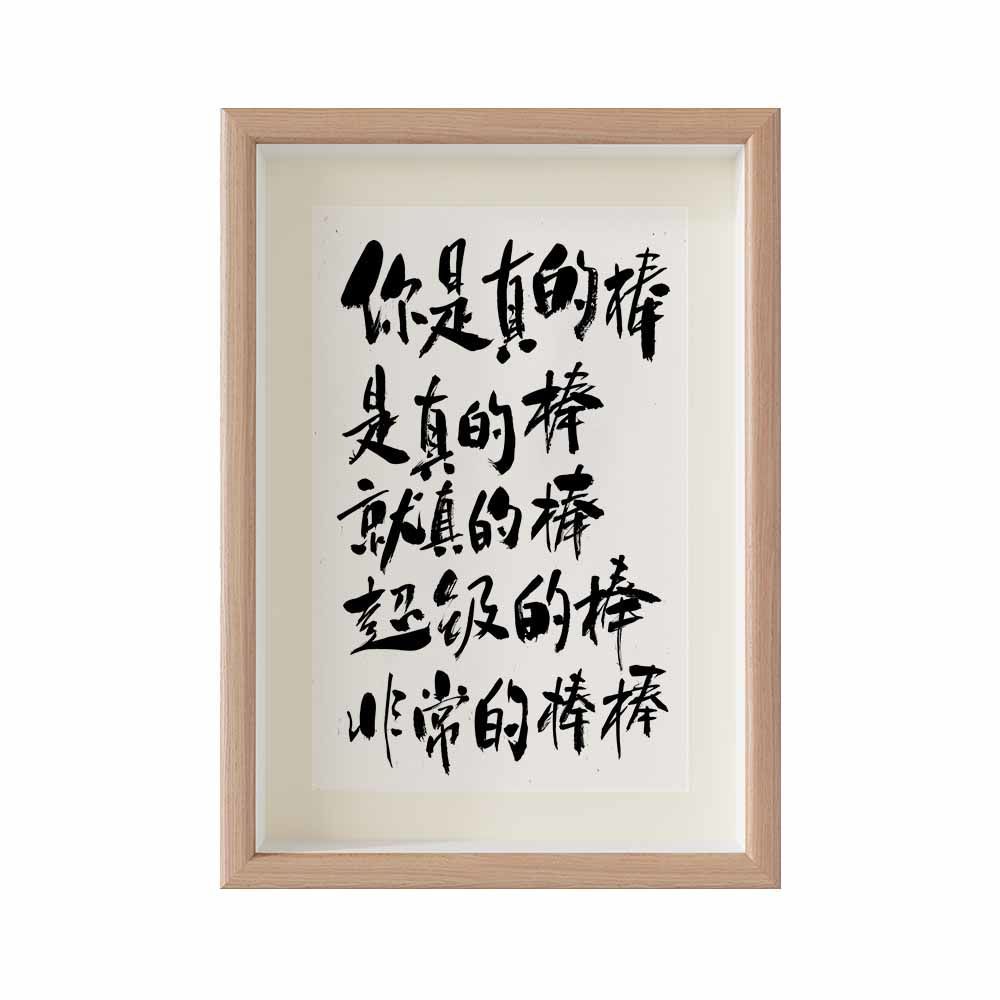 你是真的棒
是真的棒
就真的棒
超级的棒
非常的棒棒